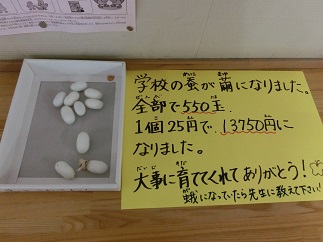 学校の蚕が繭になりました。
全部で550玉
1個25円で、13750円に
なりました。
大事に育ててくれてありがとう！
蛾になっていたら先生に教えて下さい！